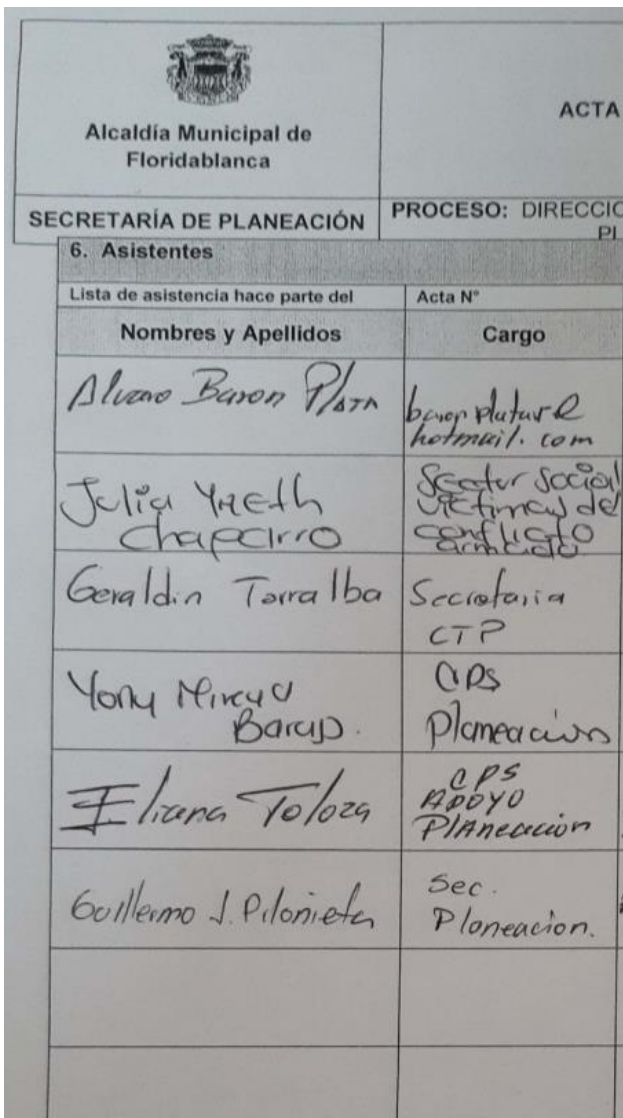 Alcaldía Municipal de
Floridablanca
ACTA
SECRETARÍA DE PLANEACIÓN
PROCESO: DIRECCIO
PL
6. Asistentes
Lista de asistencia hace parte del
Acta N°
Nombres y Apellidos
Cargo
Alvaro Baron Plata
hotmail. com
Julia Yaeth
Chaparro
Sector Social
Victimas del
conflicto
armado
Geraldin Torralba
Secretaria
CTP
Yony
CPS
Planeacion
Eliana Toloza
CPS
APOYO
Planeacion
Guillermo J. Pilonieta
Sec.
Planeacion.